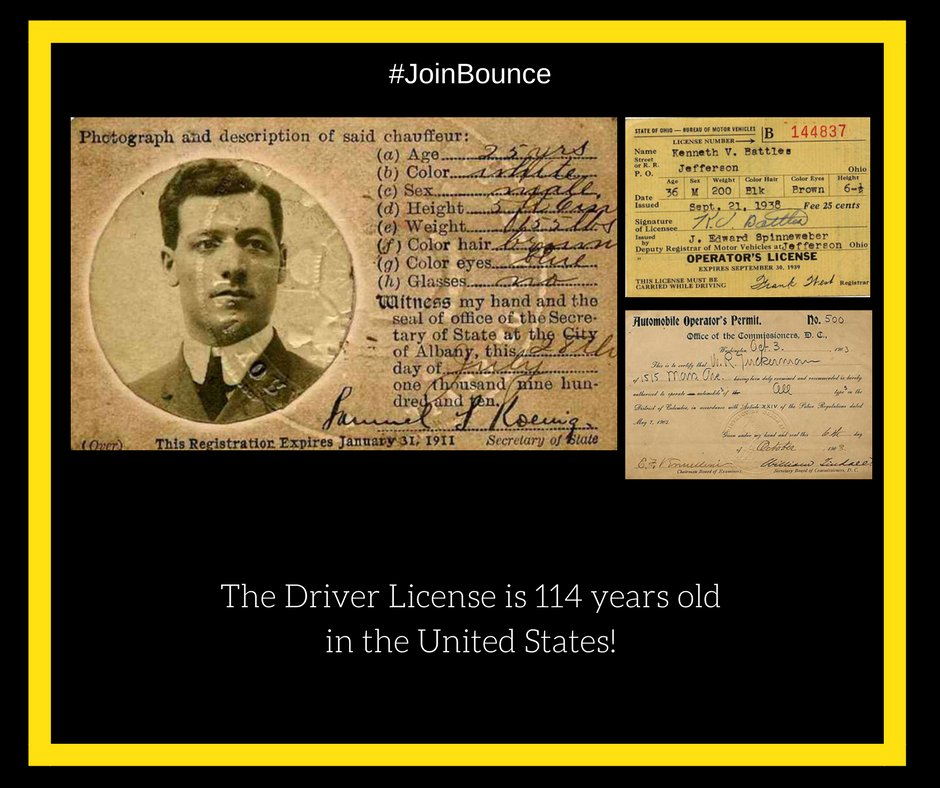 #JoinBounce
Photograph and description of said chauffeur:
(a) Age 25 yrs
(b) Color white
(c) Sex male
(d) Height 5 ft 6 in
(e) Weight lbs
(f) Color hair brown
(g) Color eyes blue
(h) Glasses no
Witness my hand and the
seal of office of the Secre-
tary of State at the City
of Albany, this
day of
one thousand nine hun-
dred and ten.
Samuel S Koenig
(Over) This Registration Expires January 31, 1911 Secretary of State
STATE OF OHIO — BUREAU OF MOTOR VEHICLES
LICENSE NUMBER B 144837
Name Kenneth V. Battles
Street
or R. R.
P. O. Jefferson Ohio
Age Sex Weight Color Hair Color Eyes Height
36 M 200 Blk Brown
Date
Issued Sept. 21, 1938 Fee 25 cents
Signature
of Licensee K.V. Battles
Issued
by J. Edward Spinneweber
Deputy Registrar of Motor Vehicles at Jefferson Ohio
OPERATOR'S LICENSE
EXPIRES SEPTEMBER 30, 1939
THIS LICENSE MUST BE
CARRIED WHILE DRIVING Frank West Registrar
Automobile Operator's Permit. No. 500
Office of the Commissioners, D. C.,
Washington, Oct. 3. 1903
This is to certify that W. R. Tuckerman
of 1515 Mass Ave. having been duly examined and recommended is hereby
authorized to operate automobile of the All type in the
District of Columbia, in accordance with Article XXIV of the Police Regulations dated
May 7, 1902.
Given under my hand and seal this 6th day
of October 1903.
William Tindall
Chairman Board of Examiners. Secretary Board of Commissioners, D. C.
The Driver License is 114 years old
in the United States!